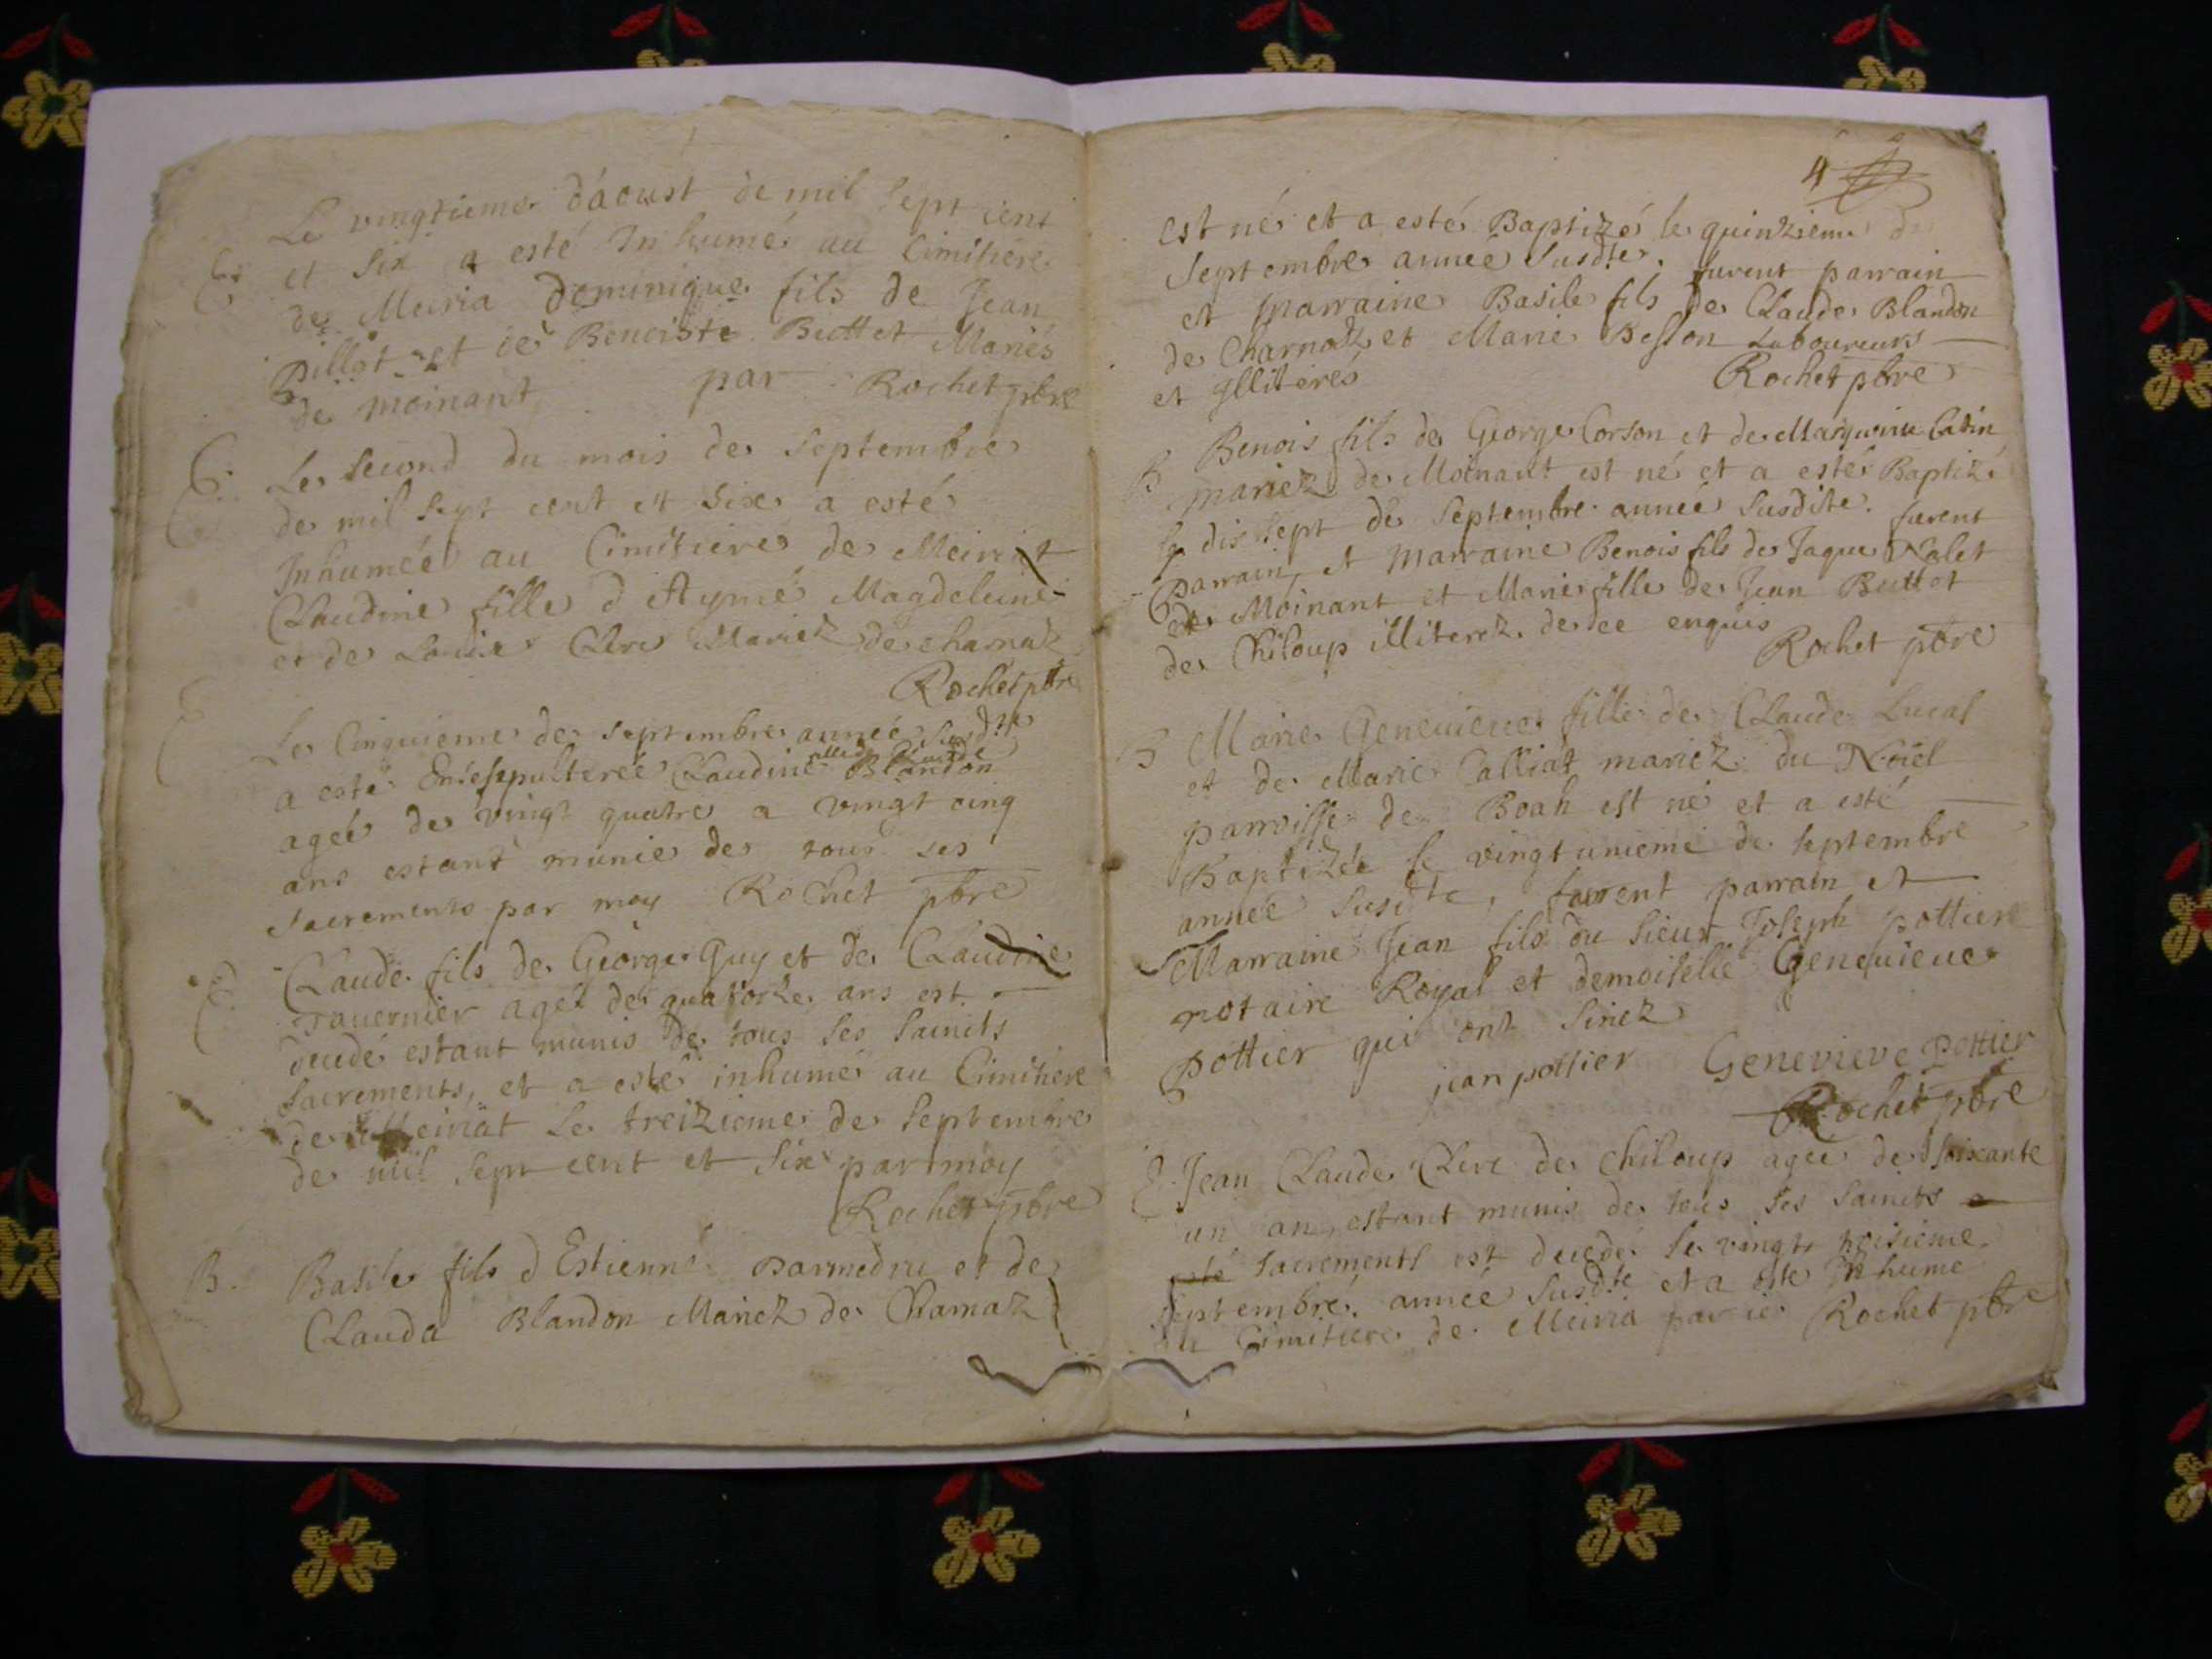 Le vingtieme d'aoust de mil sept cent
E et six a esté Inhumé au Cimitiere
de Meiria Dominique fils de Jean
Pillot et de Benoiste Buttet Mariés
de Moinant par Rochet pbre
E. Le second du mois de Septembre
de mil sept cent et six a esté
Inhumée au Cimitiere de Meiriat
Claudine fille d Aymé Magdeleine
et de Louise Clerc Mariez de charnaz
Rochet pbre
E Le Cinquieme de septembre année susdte
a esté Ensepulterée Claudine fille de Claude Blandon
agée de vingt quatre a vingt cinq
ans estant munie de tous ses
sacrements par moy Rochet pbre
E Claude fils de George Guy et de Claudine
Tavernier agé de quatorze ans est
decedé estant munis de tous ses saincts
sacrements, et a esté inhumé au Cimitiere
de Meiriat le treizieme de septembre
de mil sept cent et six par moy
Rochet pbre
B. Basile fils d Estienne et de
Clauda Blandon Mariez de Charnaz
4
est né et a esté Baptizé le quinzieme de
septembre année susdte. furent parrain
et marraine Basile fils de Claude Blandon
de Charnaz et Marie Besson Laboureurs
et Illiterés Rochet pbre
Benois fils de George Corson et de Marguerite Catin
B mariez de Moinant est né et a esté Baptizé
le dix sept de Septembre année susdite. furent
Parrain et Marraine Benois fils de Jaque Nalet
de Moinant et Marie fille de Jean Buttet
de Chiloup illiterez de ce enquis
Rochet pbre
B Marie Genevieve fille de Claude Lucas
et de Marie Calliat mariez du Noiel
parroisse de Boah est né et a esté
Baptizée le vingt unieme de septembre
année susdte, furent parrain et
Marraine Jean fils du Sieur Joseph pottier
notaire Royal et demoiselle Genevieve
pottier qui ont sinez
jean pottier Genevieve pottier
Rochet pbre
E Jean Claude Clerc de Chiloup agée de soixante
un an, estant munis de tous ses saincts
esté sacrements est decedé le vingt troisieme
septembre année susdte et a esté Inhumé
au Cimitiere de Meiria par ie Rochet pbre